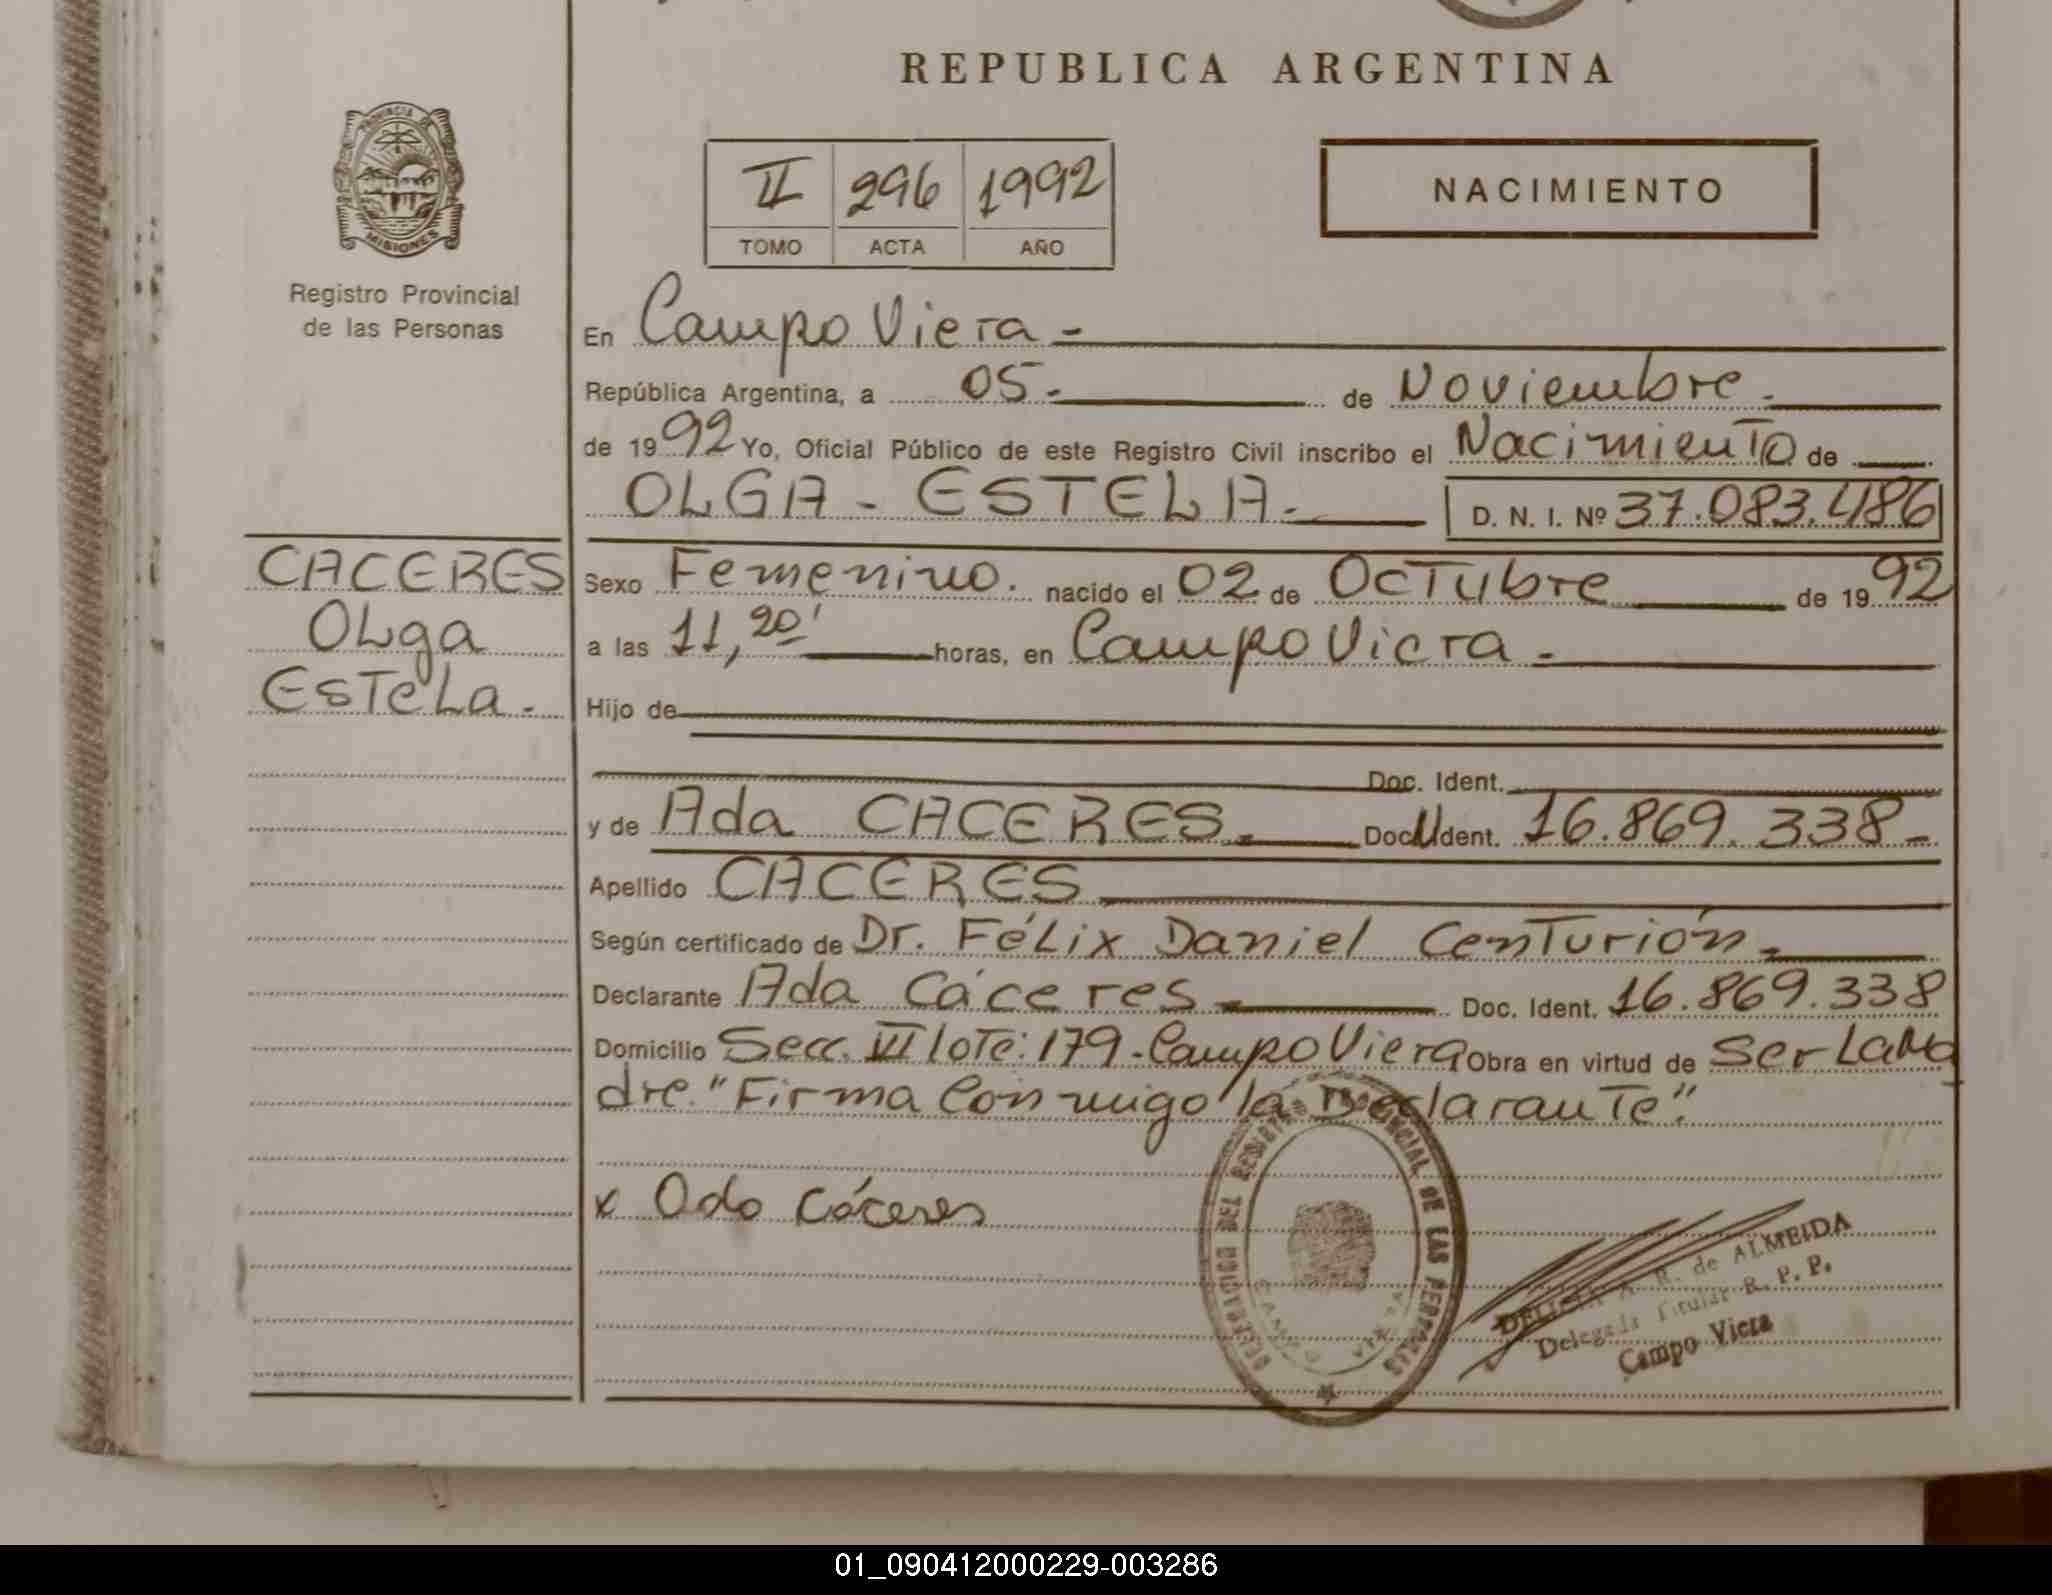 REPUBLICA ARGENTINA
PROVINCIA DE
MISIONES
Registro Provincial
de las Personas
II 296 1992
TOMO ACTA AÑO
NACIMIENTO
En Campo Viera -
República Argentina, a 05- de Noviembre.
de 1992 Yo, Oficial Público de este Registro Civil inscribo el Nacimiento de
OLGA - ESTELA. D. N. I. Nº 37.083.486
CACERES
Olga
Estela.
Sexo Femenino. nacido el 02 de Octubre de 1992
a las 11,20' horas, en Campo Viera -
Hijo de
Doc. Ident.
y de Ada CACERES. Doc. Ident. 16.869.338-
Apellido CACERES
Según certificado de Dr. Félix Daniel Centurión.
Declarante Ada Cáceres Doc. Ident. 16.869.338
Domicilio Secc. VI lote: 179-Campo Viera Obra en virtud de Ser La Ma
dre. "Firma Conmigo la Declarante".
x Ada Cáceres
DEL REGISTRO PROVINCIAL DE LAS PERSONAS
CAMPO VIERA
R. de ALMEIDA
Delegada Titular R. P. P.
Campo Viera
01_090412000229-003286